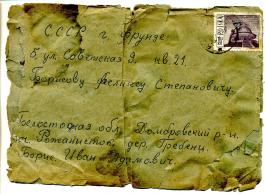 СССР г. Фрунзе
б. ул. Советская 3 кв. 21.
Борисову Феликсу Степановичу.
Белостоцкая обл. Домбровский р-н.
дер. Гребени.
Борис Иван